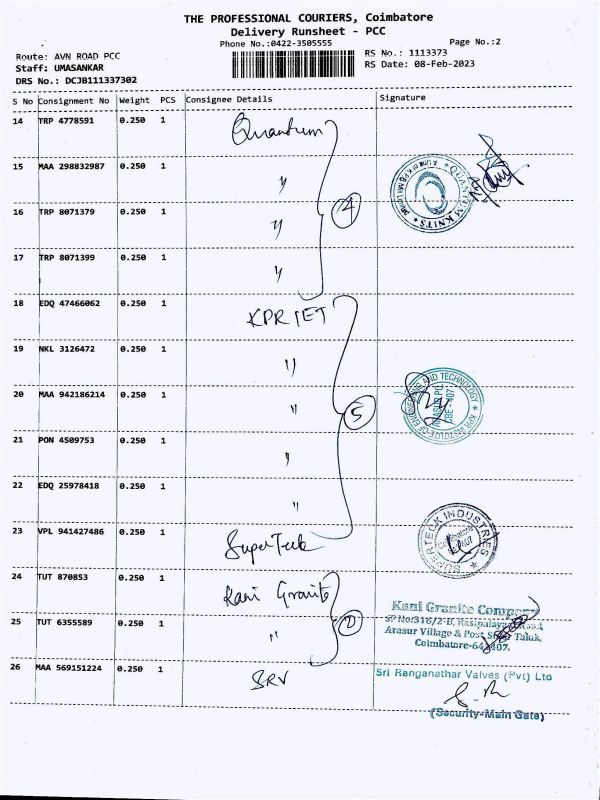 THE PROFESSIONAL COURIERS, Coimbatore
Delivery Runsheet - PCC
Phone No.:0422-3505555
Page No.:2
Route: AVN ROAD PCC
RS No.: 1113373
Staff: UMASANKAR
RS Date: 08-Feb-2023
DRS No.: DCJB111337302
S No Consignment No Weight PCS Consignee Details Signature
14 TRP 4778591 0.250 1 Quantum
15 MAA 298832987 0.250 1 "
QUANTUM KNITS
16 TRP 8071379 0.250 1 " 4
17 TRP 8071399 0.250 1 "
18 EDQ 47466062 0.250 1 KPRIET
19 NKL 3126472 0.250 1 "
20 MAA 942186214 0.250 1 " 5
KPR INSTITUTE OF ENGINEERING AND TECHNOLOGY
ARASUR PO,
CBE-407.
21 PON 4509753 0.250 1 "
22 EDQ 25978418 0.250 1 "
SUPER TECK INDUSTRIES
23 VPL 941427486 0.250 1 SuperTeck
24 TUT 870853 0.250 1 Kani Granite
Kani Granite Company
SF No:318/2-B, Rasipalayam Road,
25 TUT 6355589 0.250 1 " 2
Arasur Village & Post, Sulur Taluk,
Coimbatore-641 407.
26 MAA 569151224 0.250 1 SRV
Sri Ranganathar Valves (Pvt) Ltd
(Security-Main Gate)